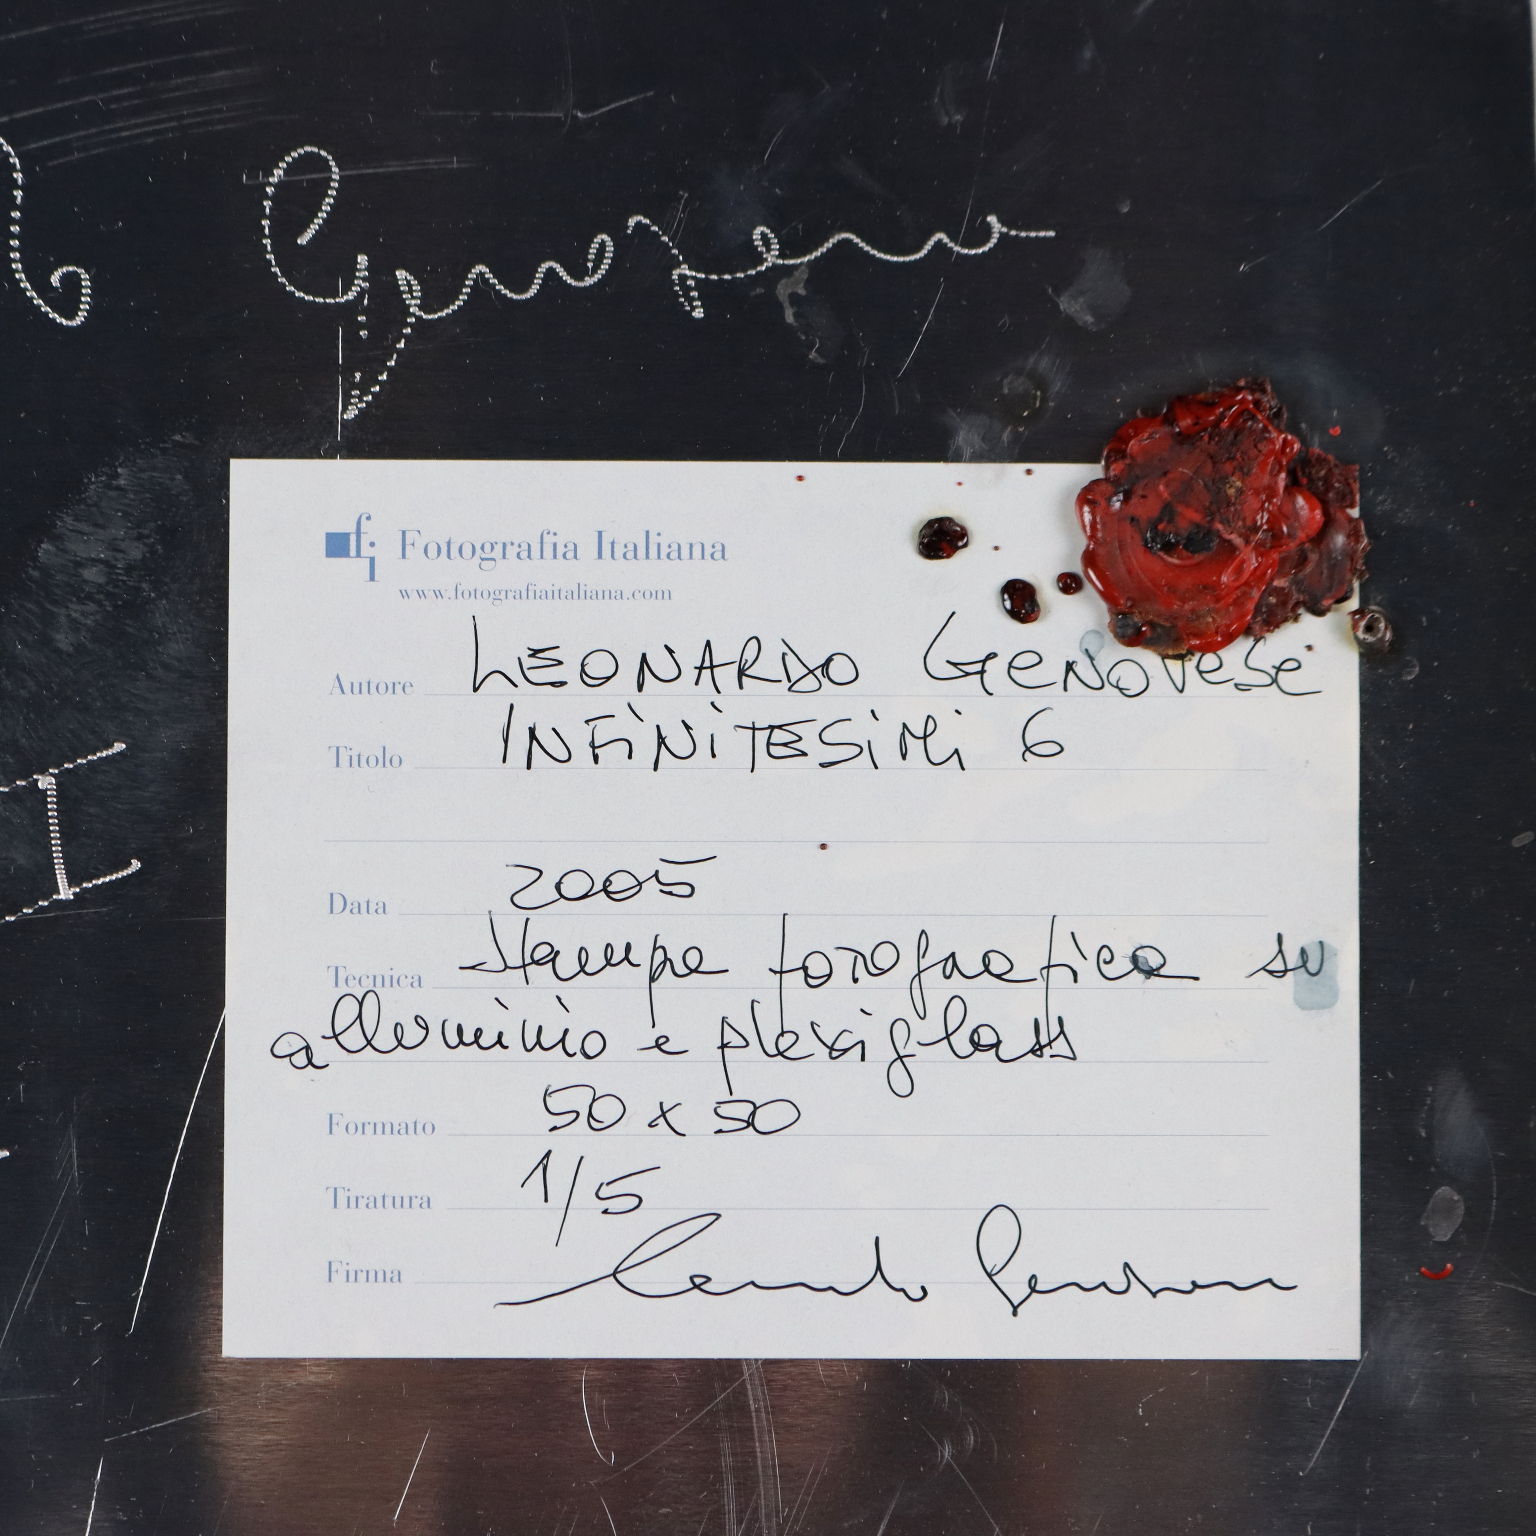 Genovese
fi Fotografia Italiana
www.fotografiaitaliana.com
Autore LEONARDO GENOVESE
Titolo INFINITESIMI 6
Data 2005
Tecnica Stampa fotografica su
alluminio e plexiglass
Formato 50 x 50
Tiratura 1/5
Firma Leonardo Genovese